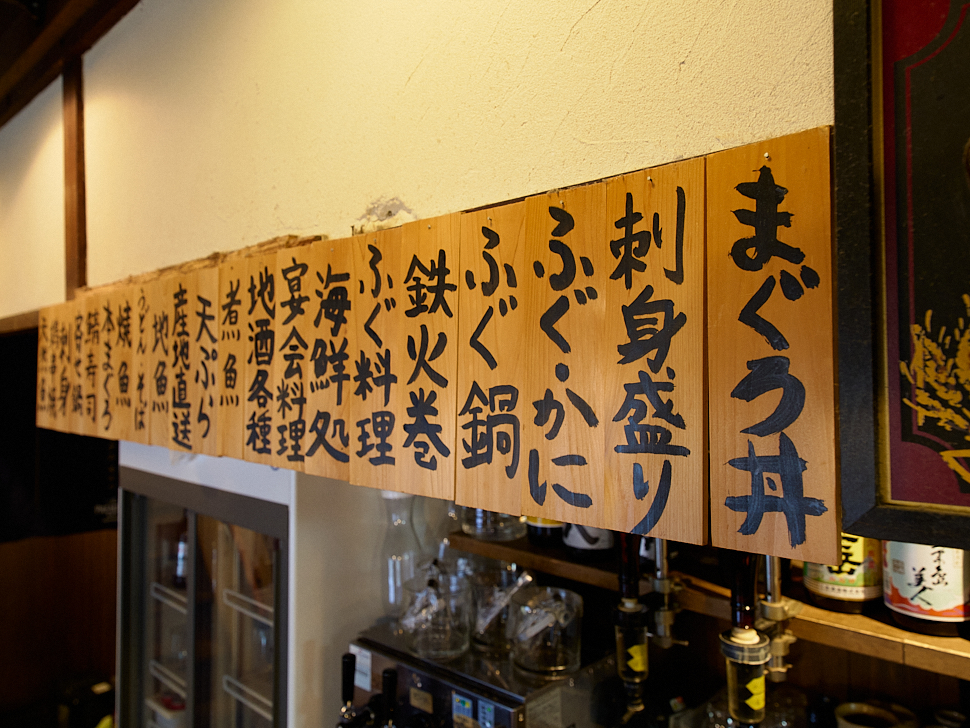 まぐろ丼
刺身盛り
ふぐ・かに
ふぐ鍋
鉄火巻
ふぐ料理
海鮮処
宴会料理
地酒各種
煮魚
天ぷら
産地直送
地魚
うどん・そば
焼魚
本まぐろ
鯖寿司
寄せ鍋
刺身
美人